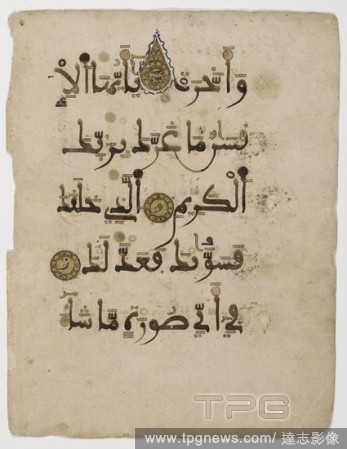 وَأَخَّرَتْ يَأَيُّهَا ٱلْإِ
نسَنُ مَا غَرَّكَ بِرَبِّكَ
ٱلْكَرِيمِ ٱلَّذِي خَلَقَكَ
فَسَوَّيكَ فَعَدَّلَكَ
فِي أَيِّ صُورَةٍ مَّا شَآءَ
TPG
www.tpgnews.com/ 達志影像